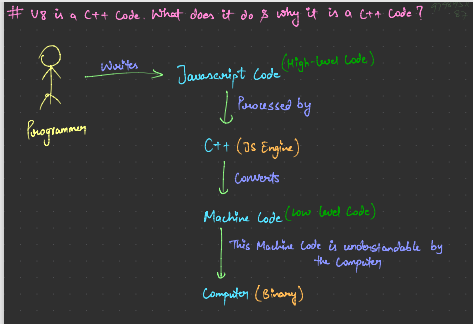 # V8 is a C++ Code. What does it do & why it is a C++ Code?
Writes
Javascript Code (High-level Code)
Programmer
Processed by
C++ (JS Engine)
Converts
Machine Code (Low level Code)
This Machine Code is understandable by
the Computer
Computer (Binary)